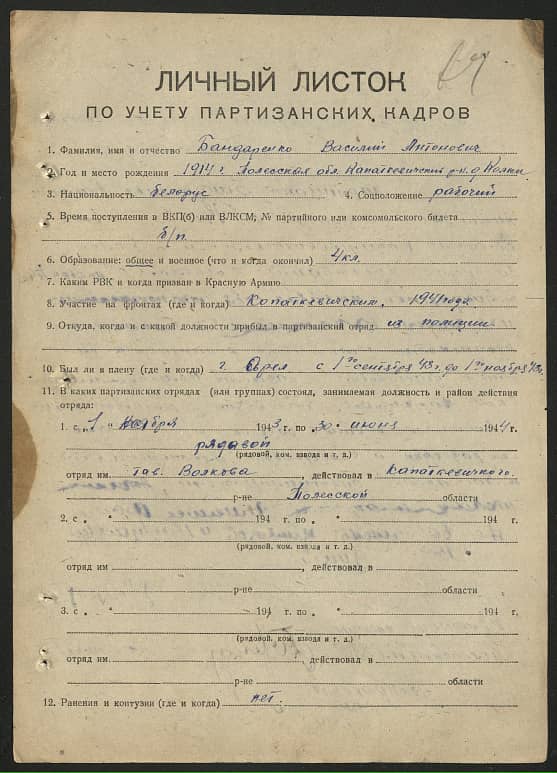 ЛИЧНЫЙ ЛИСТОК
ПО УЧЕТУ ПАРТИЗАНСКИХ КАДРОВ
1. Фамилия, имя и отчество Бандаренко Василий Антонович
2. Год и место рождения 1914 г. Полесская обл. Капаткевичский р-н. д
3. Национальность белорус 4. Соцположение рабочий
5. Время поступления в ВКП(б) или ВЛКСМ, № партийного или комсомольского билета
б/п.
6. Образование: общее и военное (что и когда окончил) 4 кл.
7. Каким РВК и когда призван в Красную Армию
8. Участие на фронтах (где и когда) Капаткевичским, 1941 года
9. Откуда, когда и с какой должности прибыл в партизанский отряд из полиции
10. Был ли в плену (где и когда) г. Орел с 1го сентября 43 г. до 1го ноября 43 г.
11. В каких партизанских отрядах (или группах) состоял, занимаемая должность и район действия
отряда:
1. с „ 1 " ноября 1943 г. по „ 30 " июня 1944 г.
рядовой
(рядовой, ком. взвода и т. д.)
отряд им. тав. Волкова, действовал в Капаткевичкого
р-не Полесской области
2. с „ " 194 г. по „ " 194 г.
(рядовой, ком. взвода и т. д.)
отряд им , действовал в
р-не области
3. с „ " 194 г. по „ " 194 г.
(рядовой, ком. взвода и т. д.)
отряд им. , действовал в
р-не области
12. Ранения и контузии (где и когда) нет.